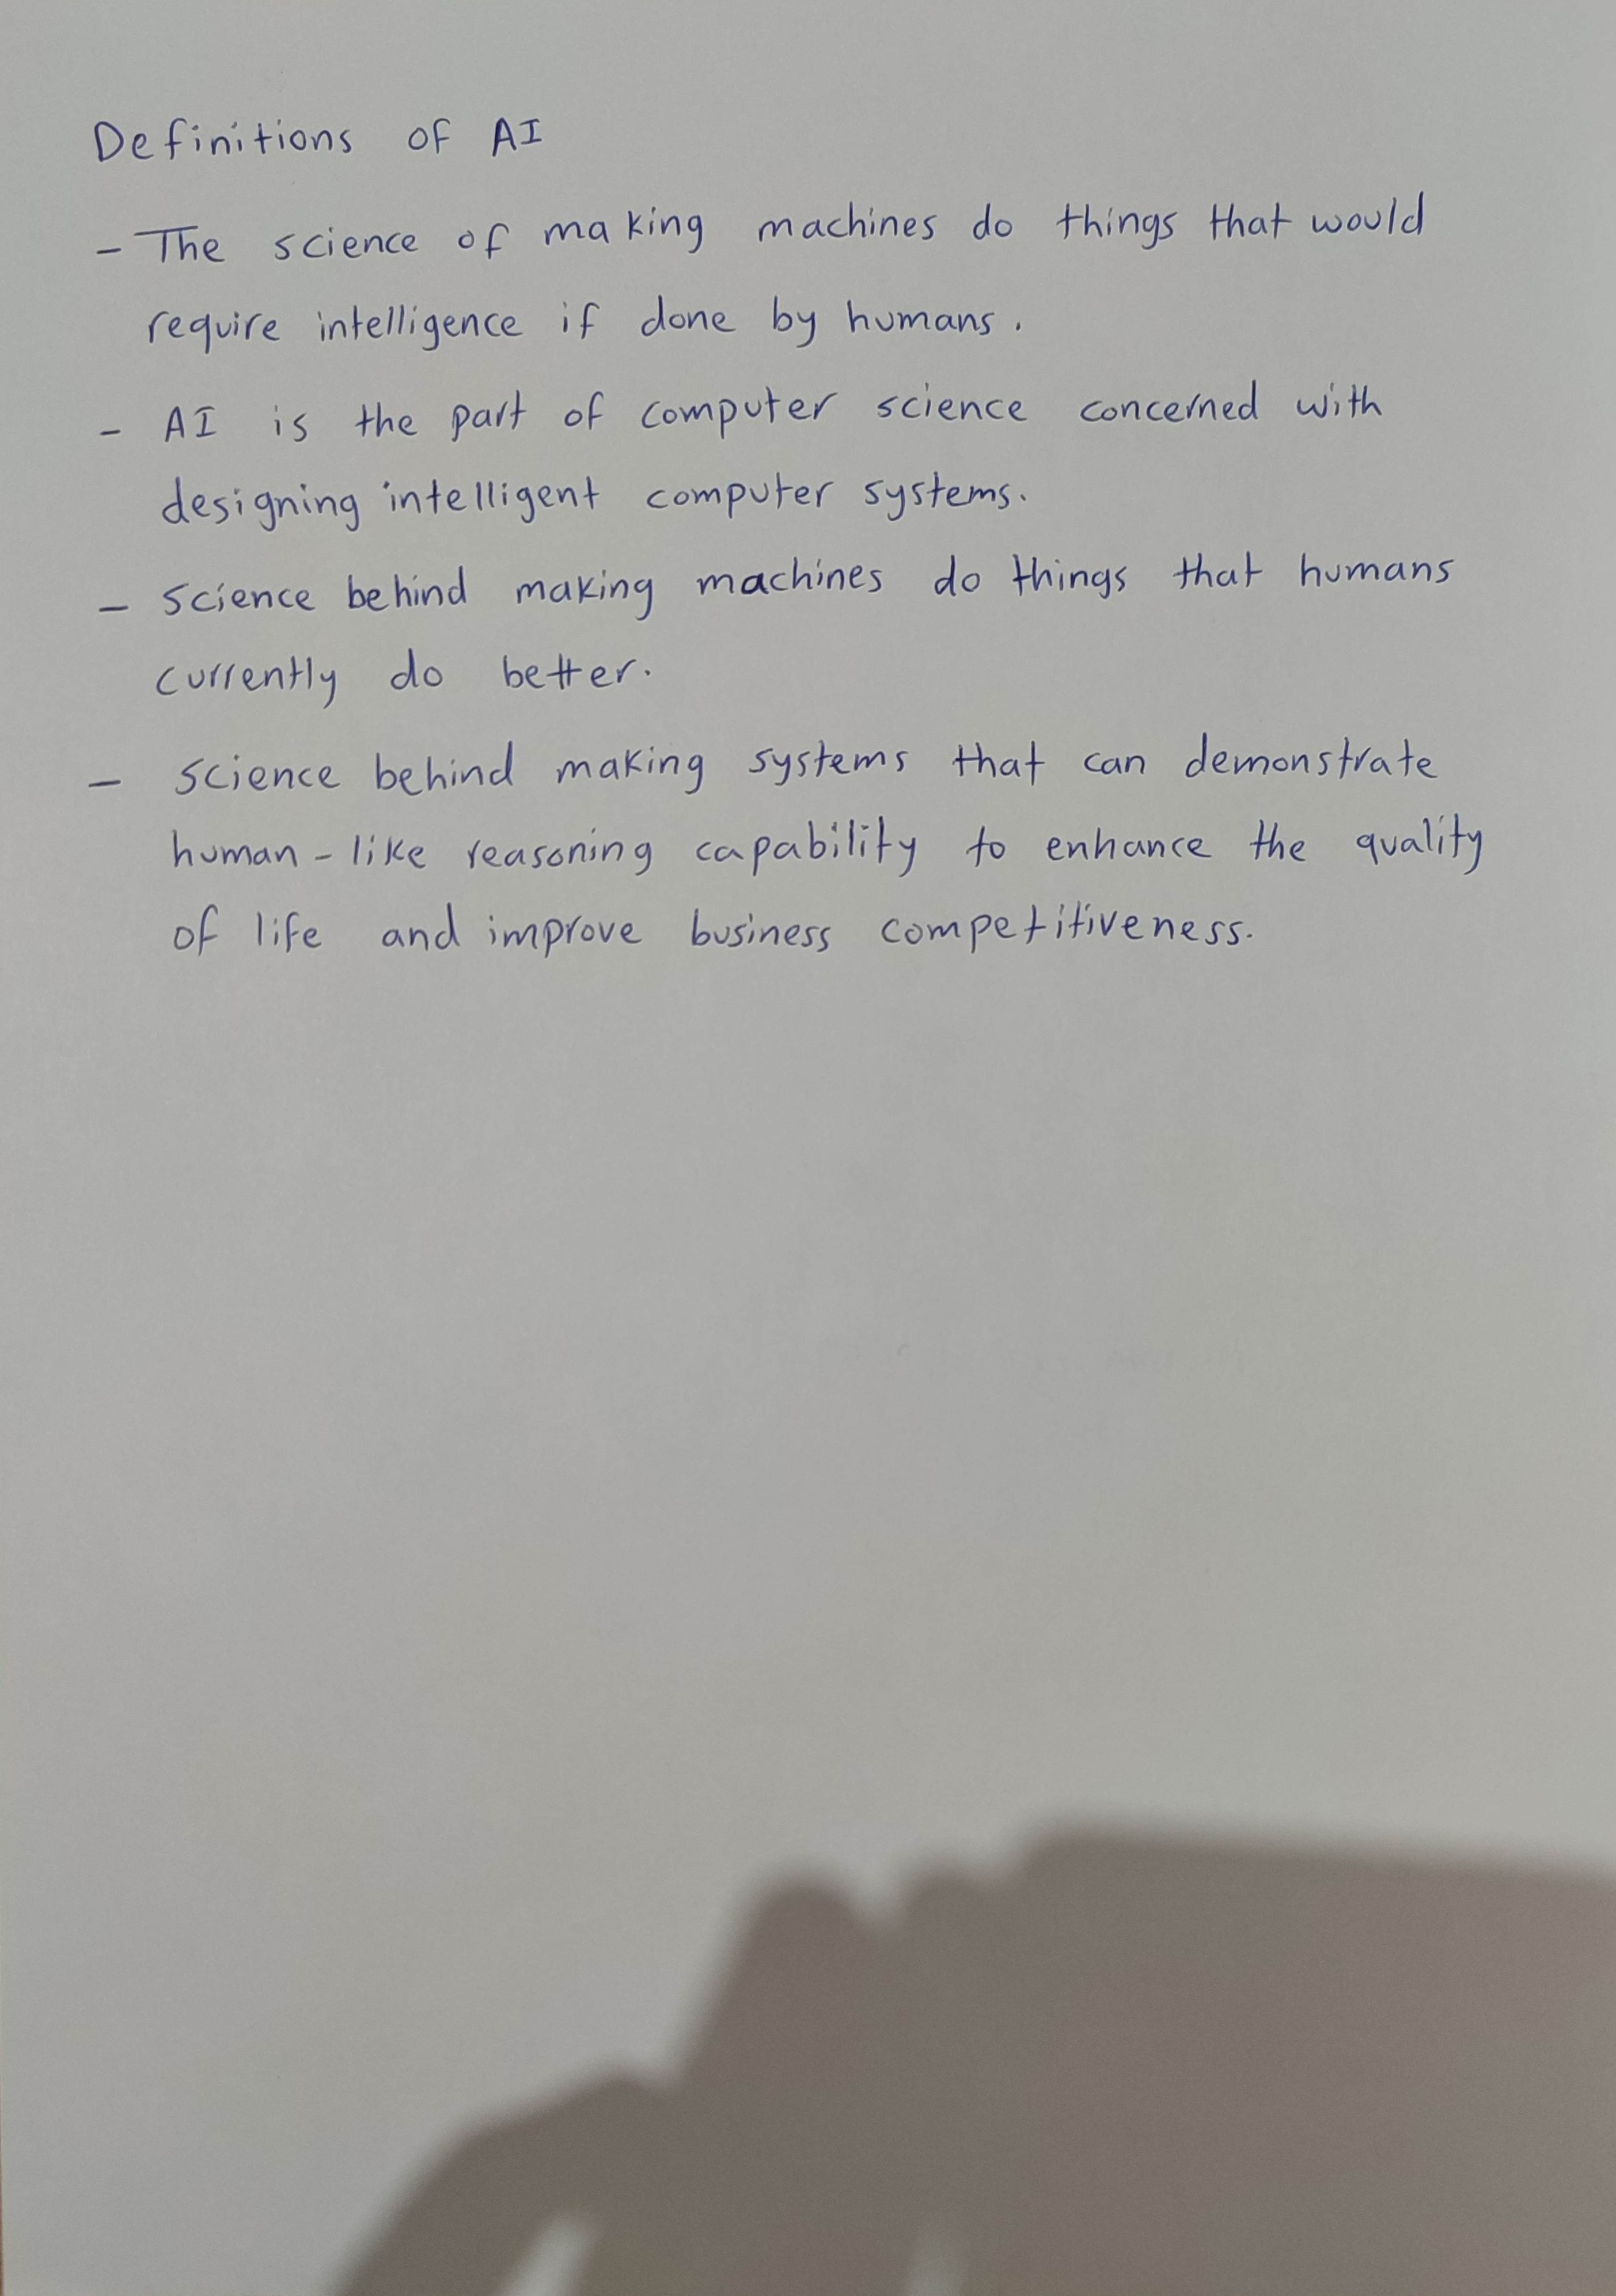 Definitions of AI
- The science of making machines do things that would
require intelligence if done by humans.
- AI is the part of computer science concerned with
designing intelligent computer systems.
- science behind making machines do things that humans
currently do better.
- science behind making systems that can demonstrate
human-like reasoning capability to enhance the quality
of life and improve business competitiveness.